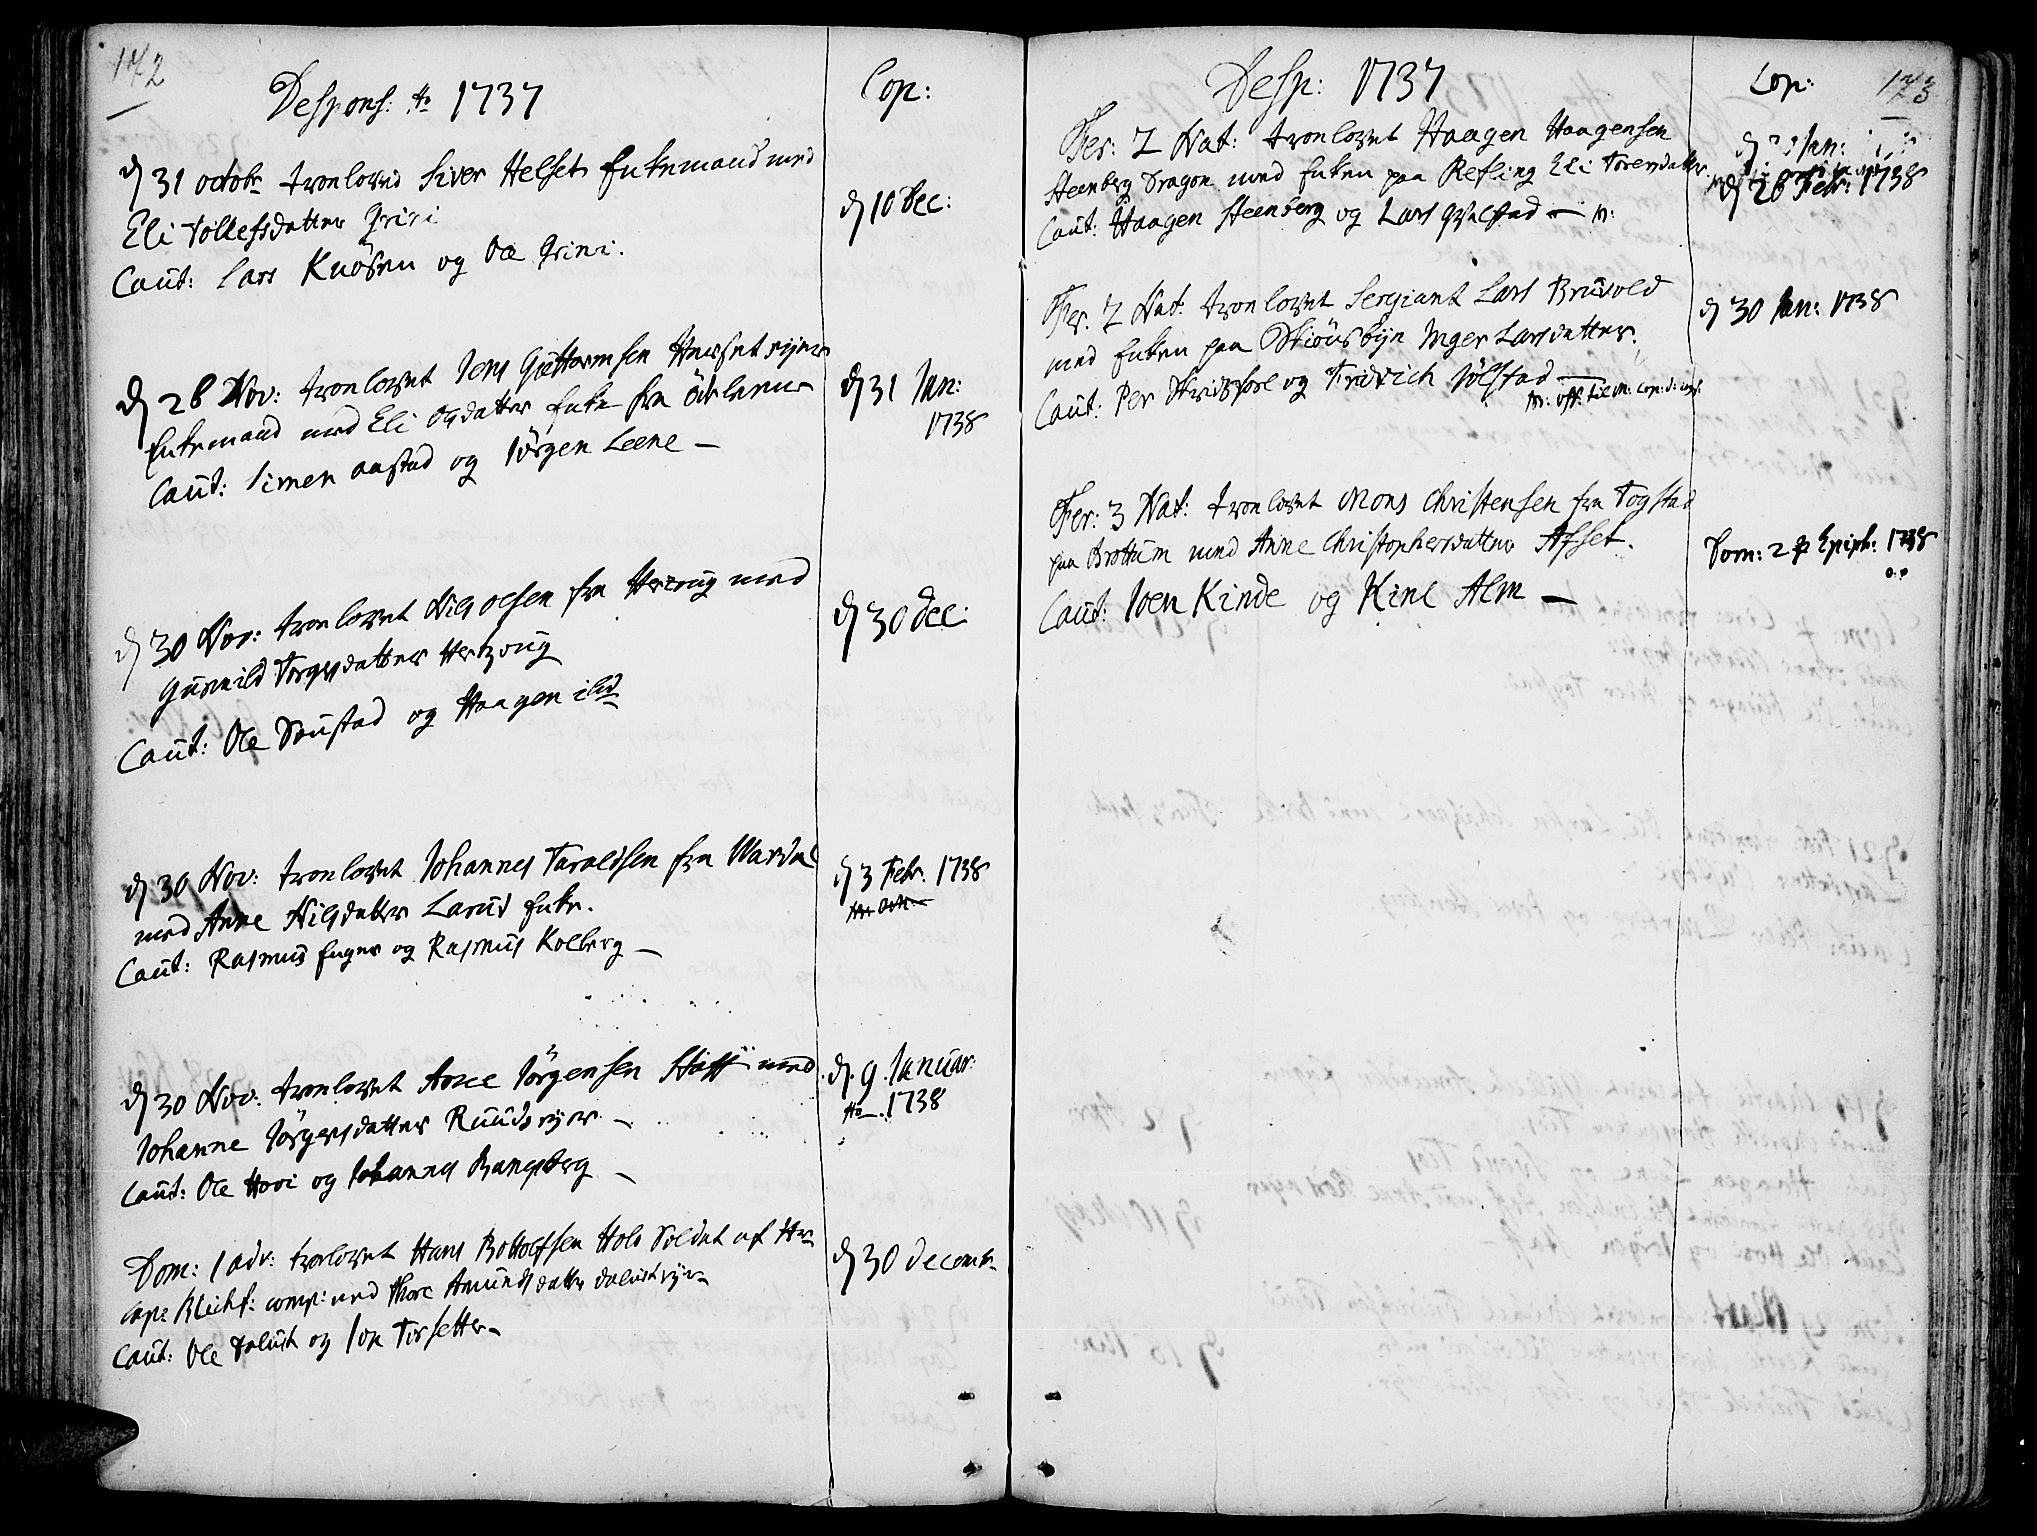 172
Despons: Ao 1737
Cop:
d 31 octobr trouloved Siver Helset Enkemand med
Eli Tollefsdatter Grini
Caut: Lars Knosen og Ole Grini.
d 10 Dec:
d 26 Nov: trouloved Jens Guttormsen Herset eyer
Enkemand med Eli Olsdatter Enke fra
Caut: Simen aastad og Jörgen Leene —
d 31 Jan:
1738
d 30 Nov: trouloved Nils Olsen fra Herzoug med
Gunnild Torgersdatter Hertzoug
Caut: Ole Soustad og Haagen ibid
d 30 Dec:
d 30 Nov: trouloved Johannes Taraldsen fra Wardal
med Anne Nilsdatter Larud Enke.
Caut: Rasmus Enger og Rasmus Kolberg —
d 3 Febr. 1738
d 30 Nov: trouloved Arne Jörgensen Staff med
Johanne Jörgensdatter Ruudseyer —
Caut: Ole Hovi og Johannes Bangsberg —
d. 9. Januar:
Ao 1738
Dom: 1 adv: trouloved Hans Botolfsen Hole Soldat af Hr
Cap: Blichf: comp: med Thore Amundsdatter
Caut: Ole og Jon Torsetter —
d 30 Decembr
Desp: 1737
Cop:
173
Fer: 2 Nat: trouloved Haagen Haagensen
Steenberg Dragon med Enken paa Refling Eli Torersdatter
Caut: Haagen Steenberg og Lars Qvalstad —
d 26 Febr: 1738
Fer. 2 Nat: trouloved Sergiant Lars Bruvold
med Enken paa Skiönsbÿe Inger Larsdatter.
Caut: Per og Fridrich Jölstad —
d 30 Jan: 1738
Fer: 3 Nat: trouloved Mons Christensen fra Togstad
paa Brottum med Anne Christophersdatter Afset.
Caut: Joen Kinde og Kinl Alm —
Dom: 2 p Epiph: 1738